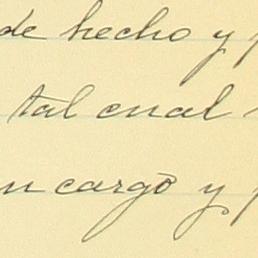 de hecho y
tal cual
un cargo y